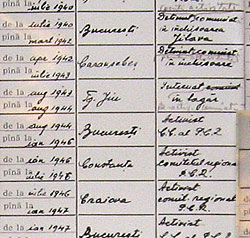 pînă la iulie 1940
de la iulie 1940 București Deținut comunist
pînă la mart 1942 în închisoare Jilava
de la apr 1942 Caransebeș Deținut comunist
pînă la iulie 1943 în închisoare
de la aug 1943 Tg. Jiu Internat comunist
pînă la aug 1944 în lagăr
de la aug 1944 București Activist
pînă la ian 1946 C.C. al P.C.R.
de la ian 1946 Constanta Activist
pînă la iulie 1946 comitetul regional P.C.R.
de la iulie 1946 Craiova Activist
pînă la ian 1947 comit. regional P.C.R.
de la ian 1947 București Activist